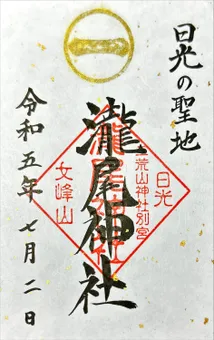 日光の聖地
瀧尾神社
令和五年 七月二日
日光
荒山神社別宮
女峰山